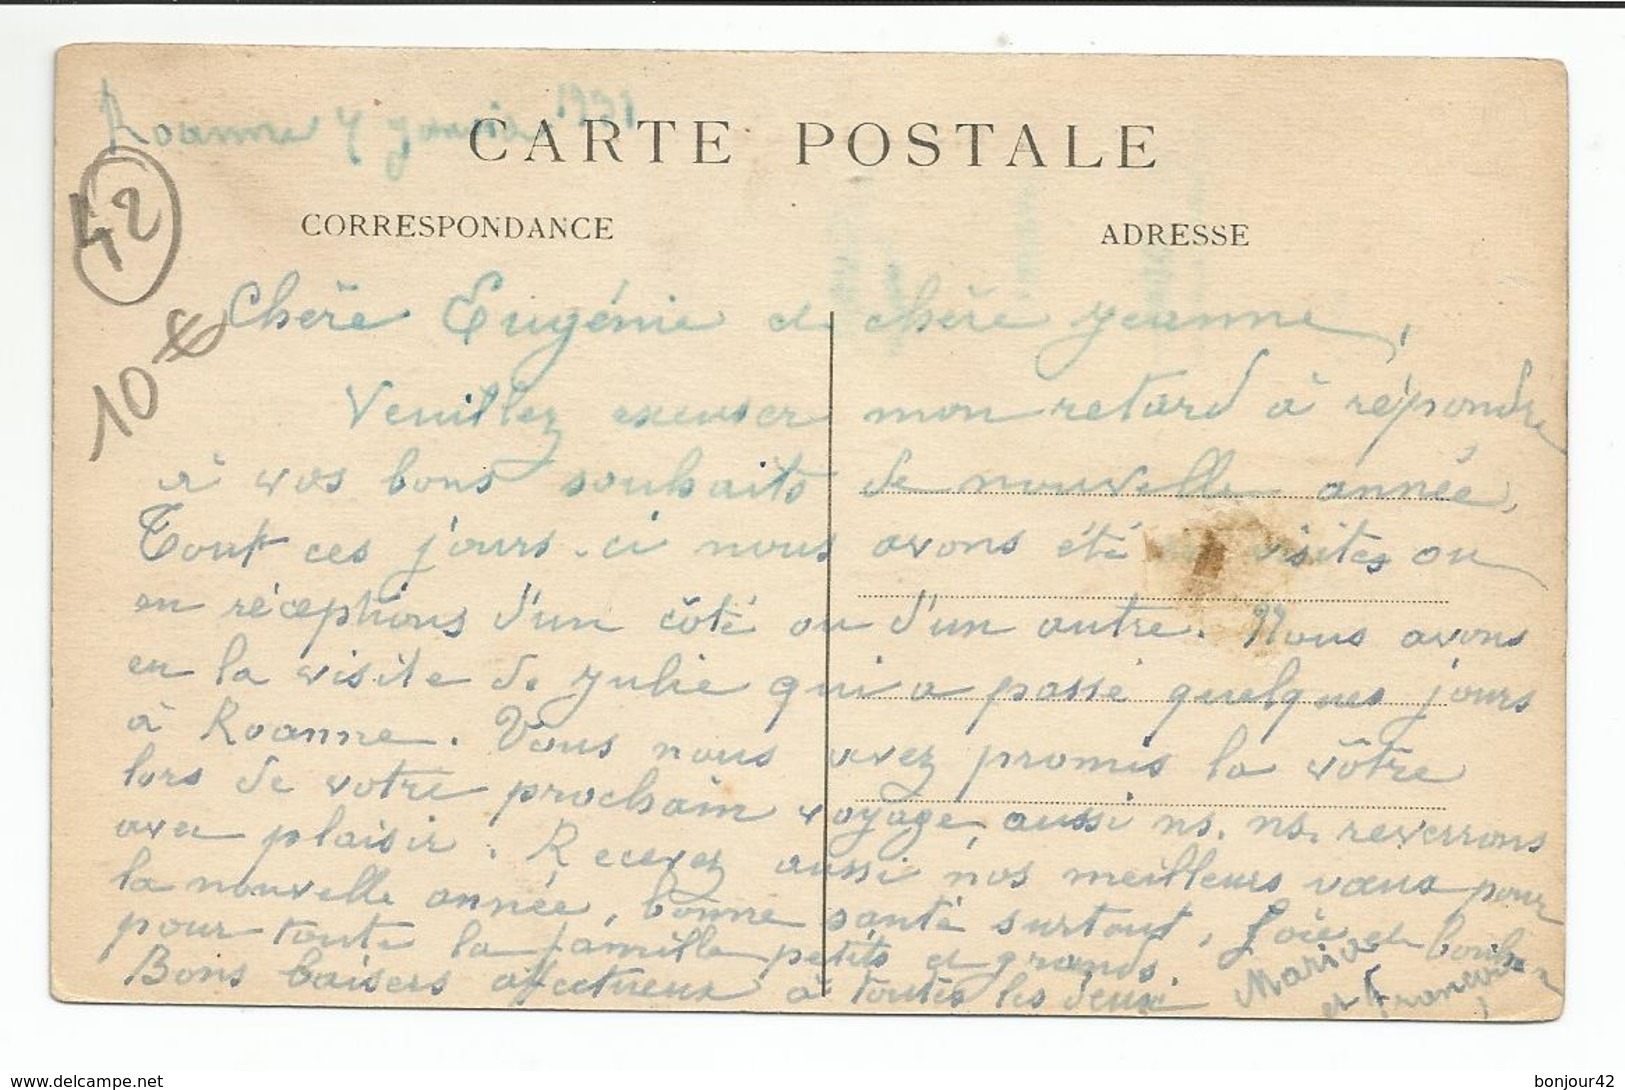 Roanne 7 Janvier 1951
CARTE POSTALE
42
CORRESPONDANCE
ADRESSE
10€
Chère Eugénie et chère Jeanne,
Veuillez excuser mon retard à répondre
à vos bons souhaits de nouvelle année.
Tout ces jours-ci nous avons été visites ou
en réceptions d'un côté ou d'un autre. Nous avons
eu la visite de Julie qui a passé quelques jours
à Roanne. Vous nous avez promis la vôtre
lors de votre prochain voyage, aussi ns. ns. reverrons
avec plaisir. Recevez aussi nos meilleurs vœux pour
la nouvelle année, bonne santé surtout, joie et bonheur
pour toute la famille petits et grands.
Bons baisers affectueux à toutes les deux
Maria
et Francois
www.delcampe.net
bonjour42